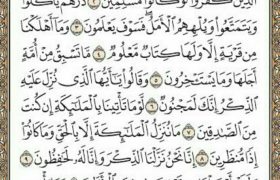 الَّذِينَ كَفَرُوا لَوْ كَانُوا مُسْلِمِينَ ٢ ذَرْهُمْ يَأْكُلُوا
وَيَتَمَتَّعُوا وَيُلْهِهِمُ الْأَمَلُ فَسَوْفَ يَعْلَمُونَ ٣ وَمَا أَهْلَكْنَا
مِن قَرْيَةٍ إِلَّا وَلَهَا كِتَابٌ مَّعْلُومٌ ٤ مَّا تَسْبِقُ مِنْ أُمَّةٍ
أَجَلَهَا وَمَا يَسْتَـْٔخِرُونَ ٥ وَقَالُوا يَٰٓأَيُّهَا الَّذِي نُزِّلَ عَلَيْهِ
الذِّكْرُ إِنَّكَ لَمَجْنُونٌ ٦ لَّوْ مَا تَأْتِينَا بِالْمَلَٰٓئِكَةِ إِن كُنتَ
مِنَ الصَّٰدِقِينَ ٧ مَا نُنَزِّلُ الْمَلَٰٓئِكَةَ إِلَّا بِالْحَقِّ وَمَا كَانُوا
إِذًا مُّنظَرِينَ ٨ إِنَّا نَحْنُ نَزَّلْنَا الذِّكْرَ وَإِنَّا لَهُ لَحَٰفِظُونَ ٩